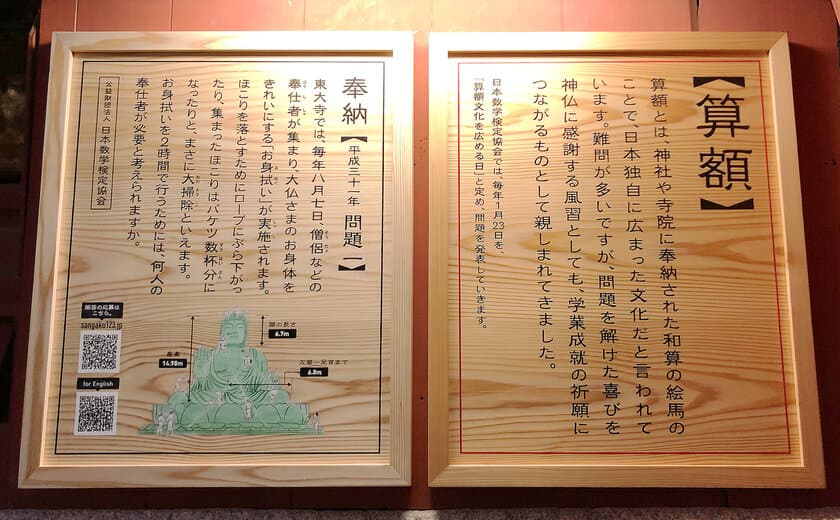 【算額】
算額とは、神社や寺院に奉納された和算の絵馬の
ことで、日本独自に広まった文化だと言われて
います。難問が多いですが、問題を解けた喜びを
神仏に感謝する風習としても、学業成就の祈願に
つながるものとして親しまれてきました。
日本数学検定協会では、毎年1月23日を、
「算額文化を広める日」と定め、問題を発表していきます。
奉納【平成三十一年 問題一】
東大寺では、毎年八月七日、僧侶などの
奉仕者が集まり、大仏さまのお身体を
きれいにする「お身拭い」が実施されます。
ほこりを落とすためにロープにぶら下がっ
たり、集まったほこりはバケツ数杯分に
なったりと、まさに大掃除といえます。
お身拭いを2時間で行うためには、何人の
奉仕者が必要と考えられますか。
公益財団法人 日本数学検定協会
解答の応募は
こちら。
sangaku123.jp
for English
頭の長さ
6.7m
座高
14.98m
左膝〜足首まで
6.8m